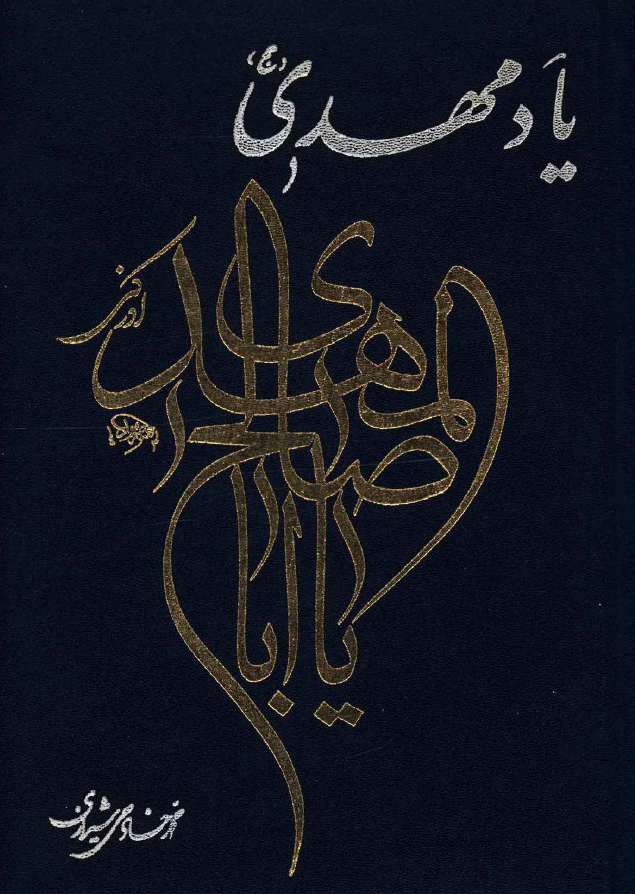 یاد مهدی (عج)
یا اباصالح المهدی ادرکنی
محمد خادمی شیرازی